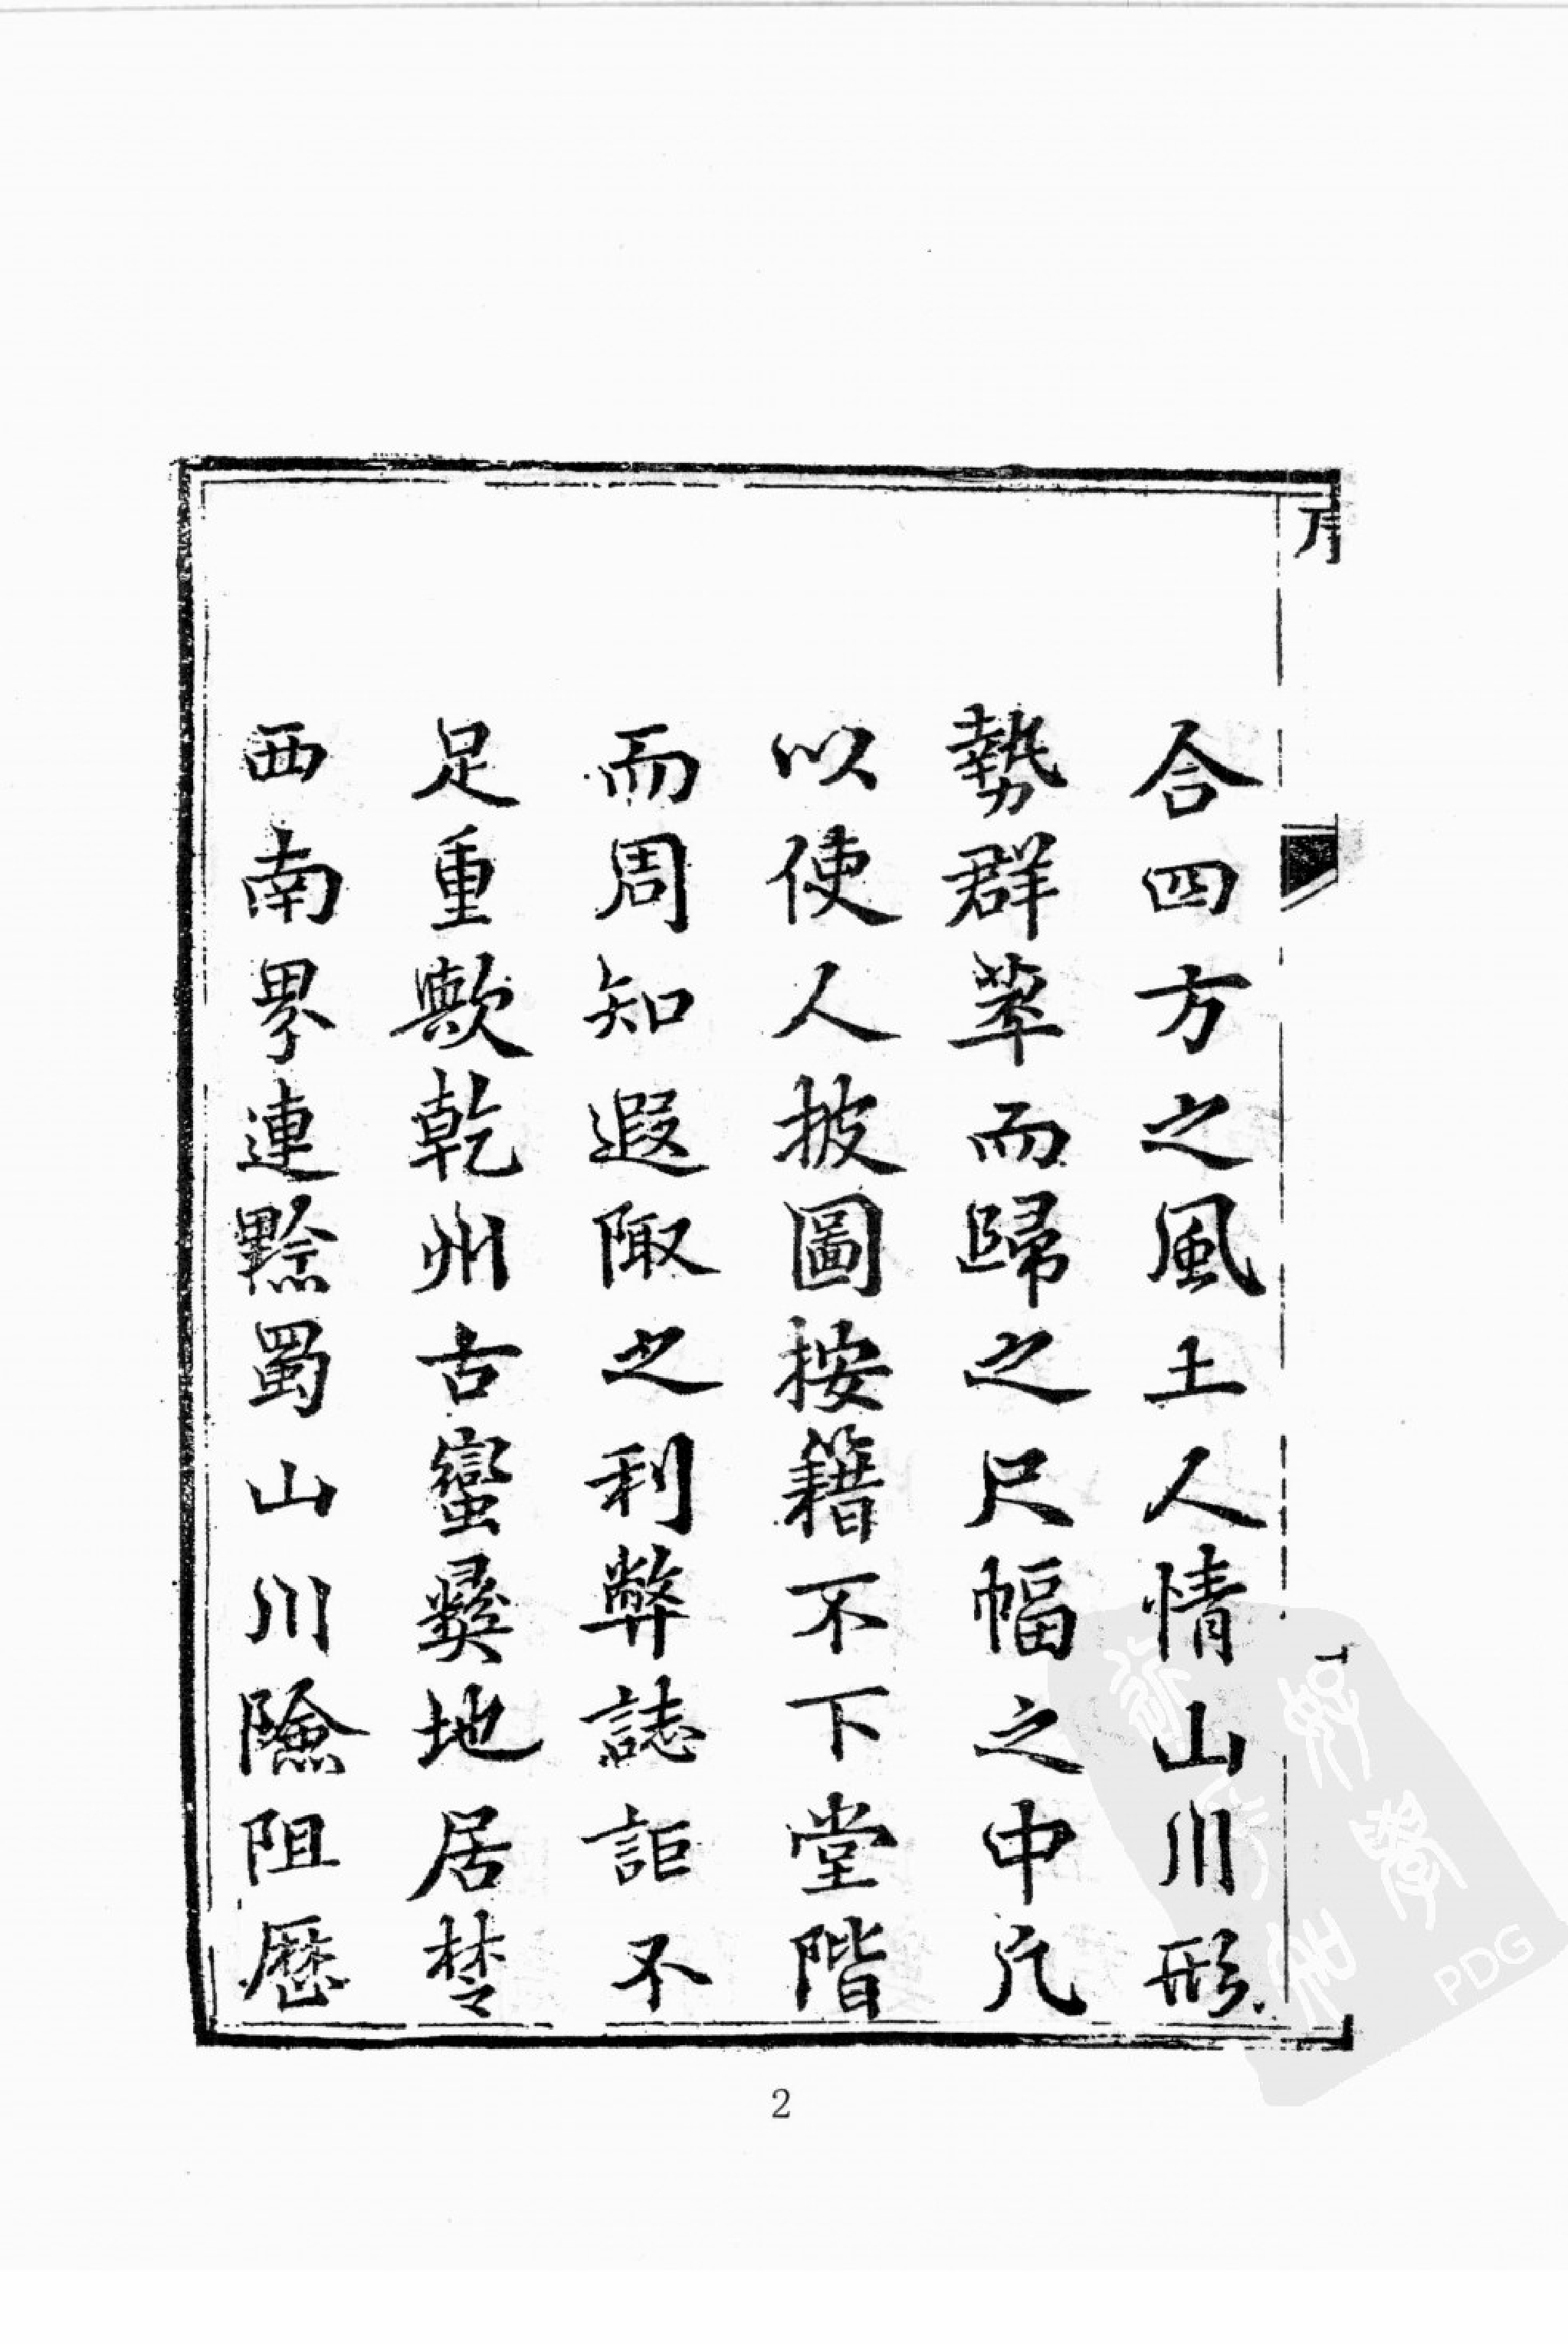 合四方之風土人情山川形
勢群萃而歸之尺幅之中凡
以使人披圖按籍不下堂階
而周知遐陬之利弊誌詎不
足重歟乾州古蠻彜地居楚
西南界連黔蜀山川險阻歷
2
PDG